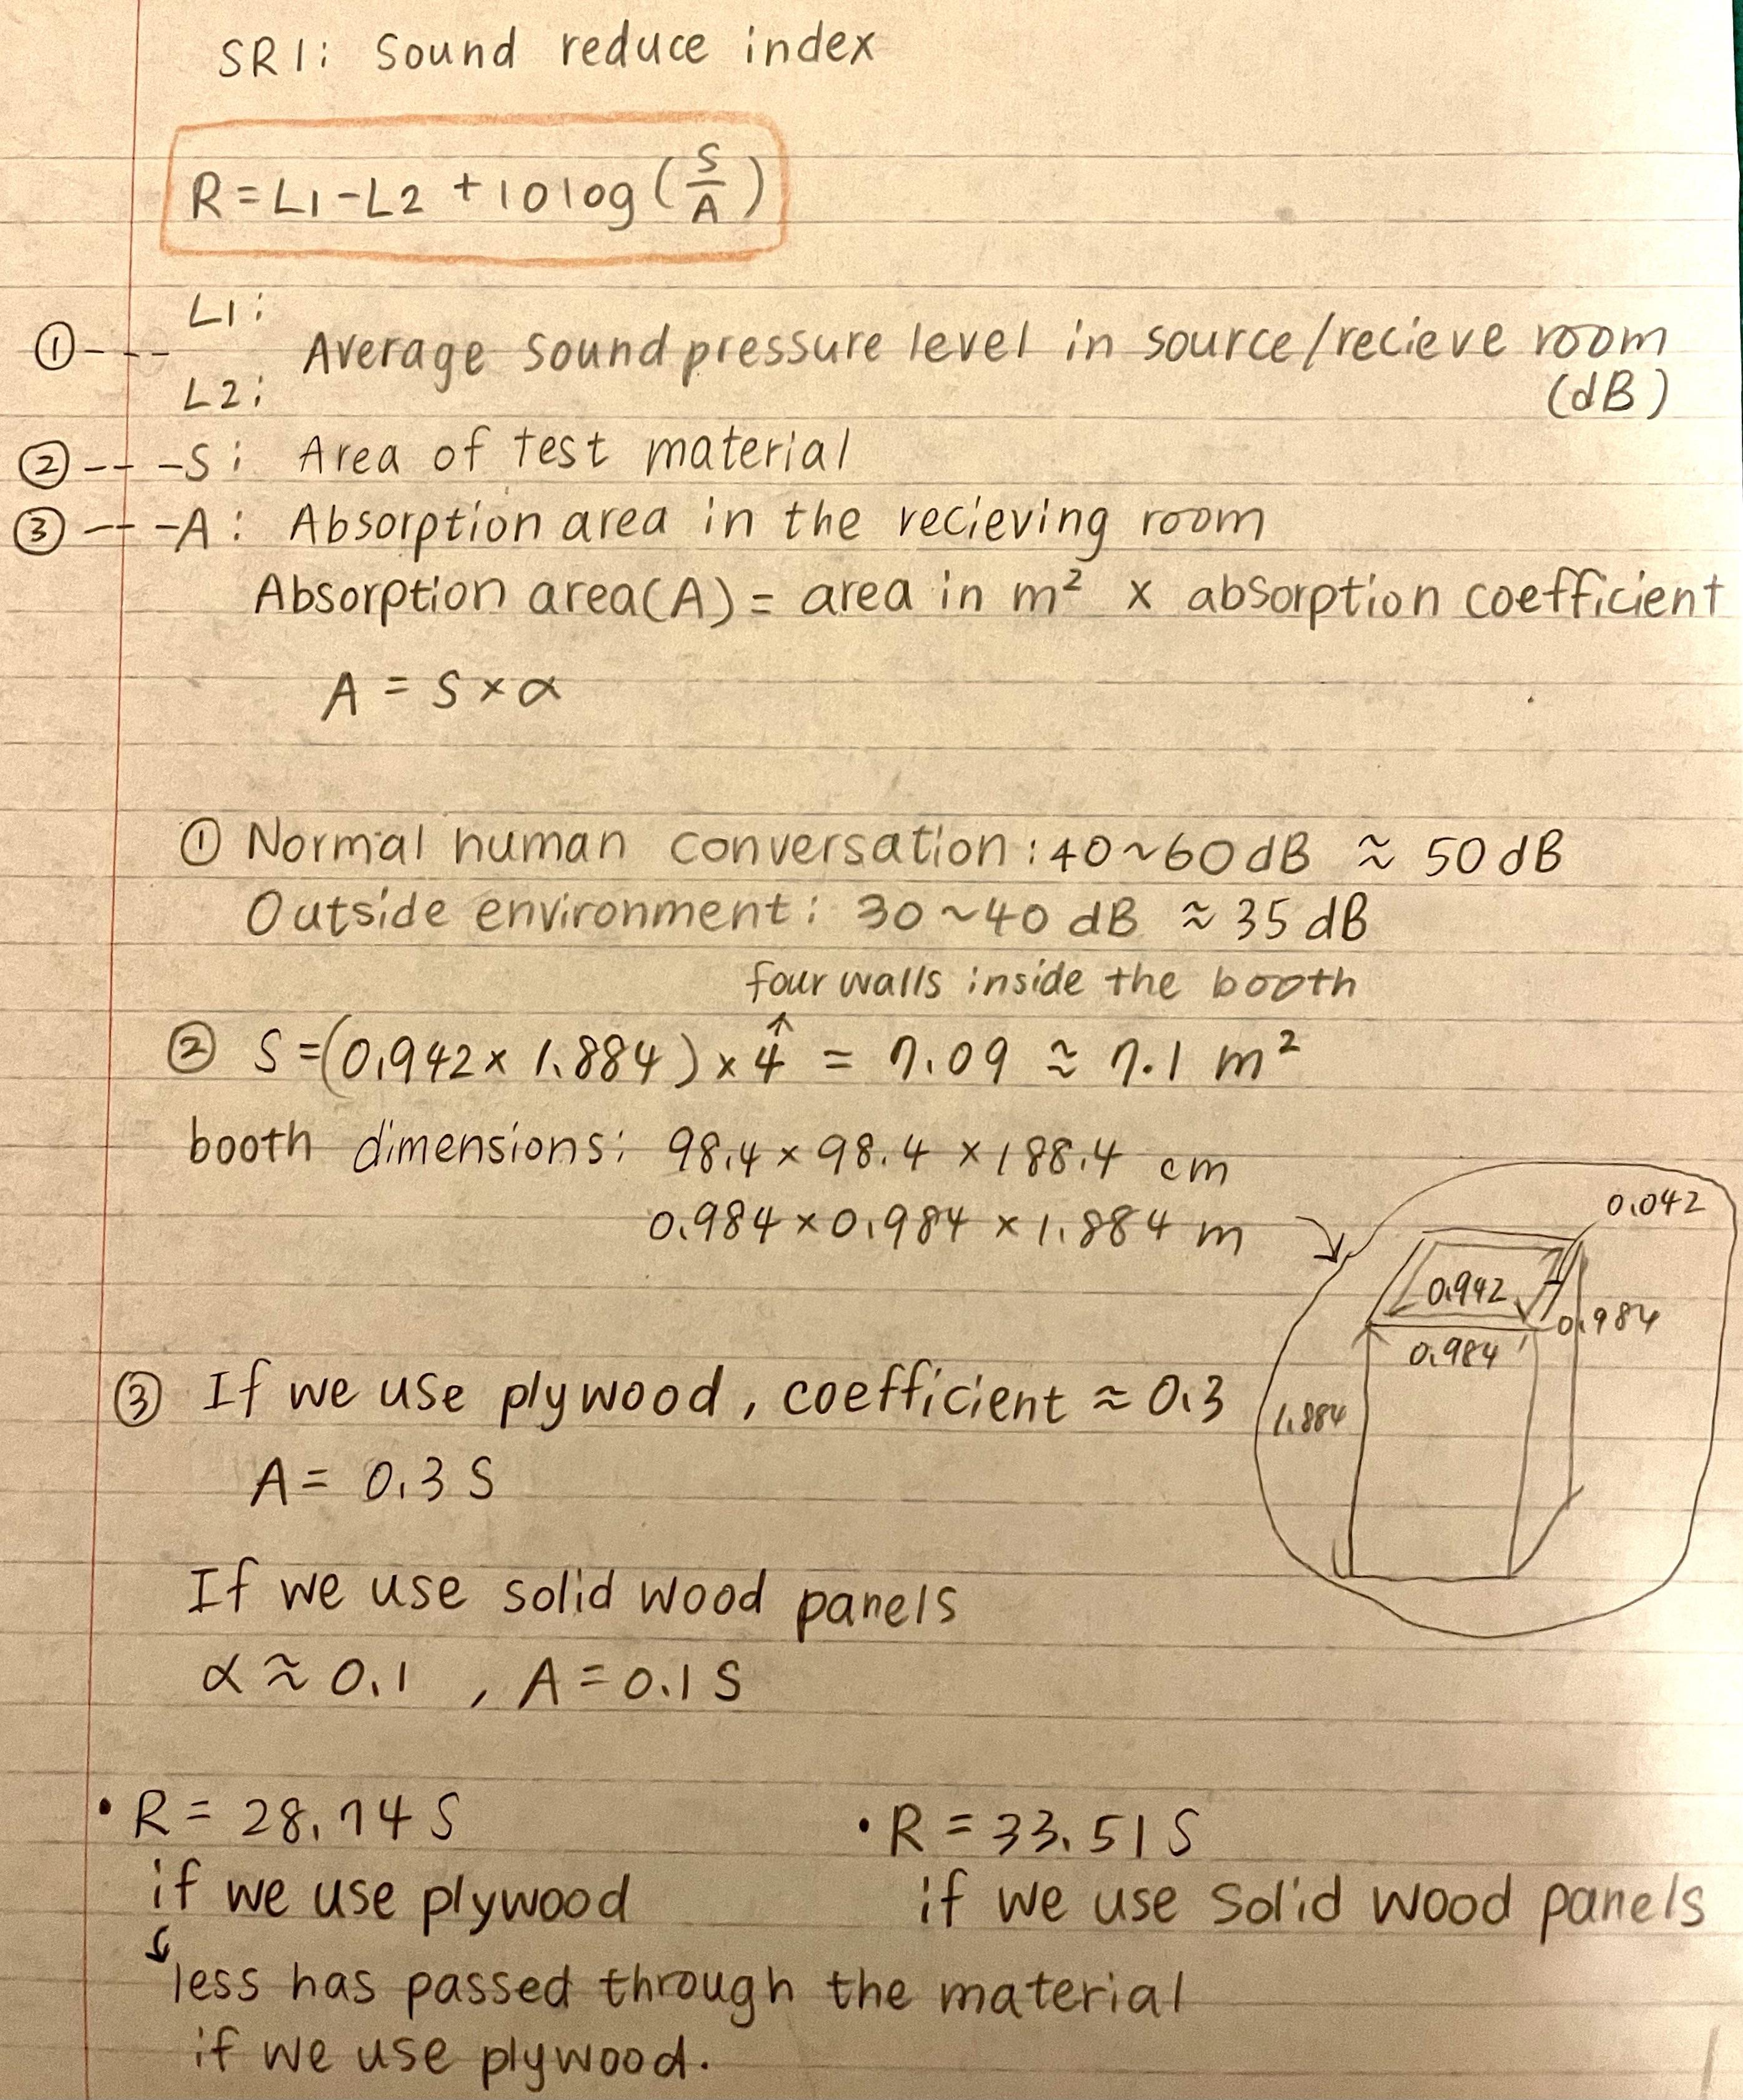 SRI: Sound reduce index
R=L1-L2 +10log(S/A)
L1:
①--- Average sound pressure level in source/recieve room
L2: (dB)
②-- -S: Area of test material
③-- -A: Absorption area in the recieving room
Absorption area(A)= area in m² x absorption coefficient
A = S×α
① Normal human conversation: 40~60dB ≈ 50dB
Outside environment: 30~40 dB ≈ 35 dB
four walls inside the booth
↑
② S=(0.942 × 1.884) × 4 = 7.09 ≈ 7.1 m²
booth dimensions: 98.4×98.4×188.4 cm
0.984×0.984×1.884 m →
0.042
0.942
0.984
0.984
1.884
③ If we use plywood, coefficient ≈ 0.3
A= 0.3 S
If we use solid wood panels
α≈0.1, A=0.1S
• R= 28.74 S
if we use plywood
↓
less has passed through the material
if we use plywood.
• R=33.51 S
if we use solid wood panels